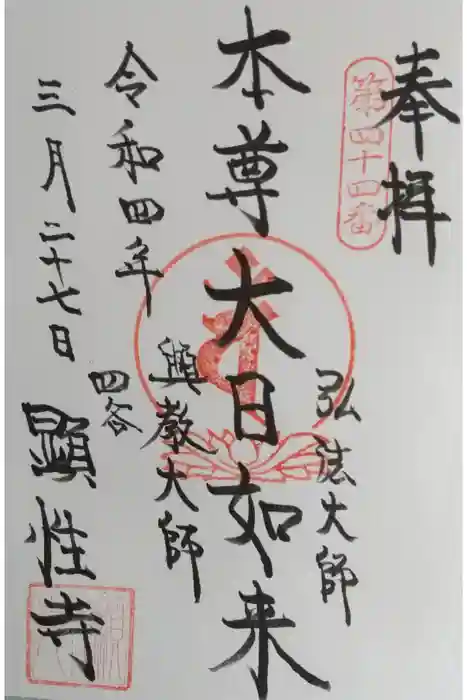 奉拝
第四十四番
弘法大師
本尊大日如来
興教大師
四谷
令和四年
三月二十七日
顕性寺